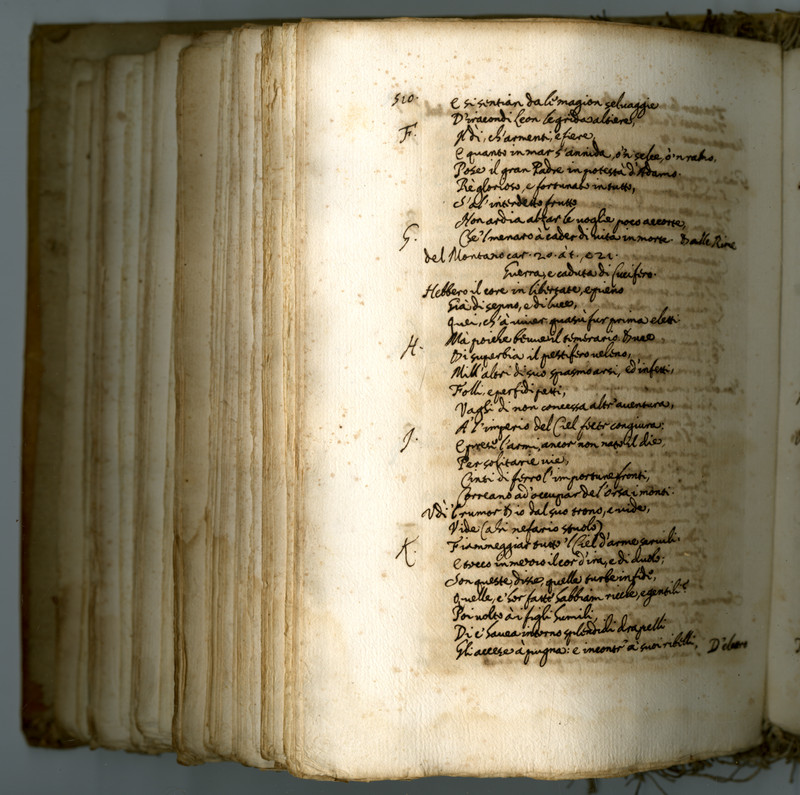 510.
E si sentian da le magion selvaggie
D'iracondi leon le grida altiere,
F. Ildì, ch'armenti, e fiere,
E quanto in mar s'annida, ò'n selce, ò'n ramo,
Pose il gran Padre in potestà d'Adamo.
Rè glorioso, e fortunato in tutto,
S'a l'interdetto frutto
Non ardia alzar le voglie poco accorte,
G. Che'l menaro à cader di vita in morte. Dalle Rime
del Montano car. 20. à t., e 21.
Guerra, e caduta di Lucifero.
Hebbero il core in libertate, e pieno
Già di senno, e di luce,
Quei, ch'à viver quasù fur prima eletti
H. Mà poiche bevve il temerario Duce
Di superbia il pestifero veleno,
Mill'altri di suo spasmo arsi, ed infetti,
Folli, e perfidi petti,
Vaghi di non concessa altr'aventura,
A l'imperio del Ciel fetr congiura;
J. E prese l'armi, ancor non nato il die
Per solitarie vie,
Cinti di ferro l'importune fronti,
Correano ad'occupar del'Orsa i monti.
Udì'l rumor Dio dal suo trono, e vide,
Vide (ahi nefario stuolo)
K. Fiammeggiar tutto'l Ciel d'arme
E tocco in mezo il cor d'ira, e di duolo;
Son queste disse, quelle turbe infide,
Quelle, e'hor fatte habbiam ricche, e gentili?
Poi volto à i figli humili,
Di c'havea intorno splendidi drapelli
Gli accese à pugna: e incontr'a' suoi ribelli,